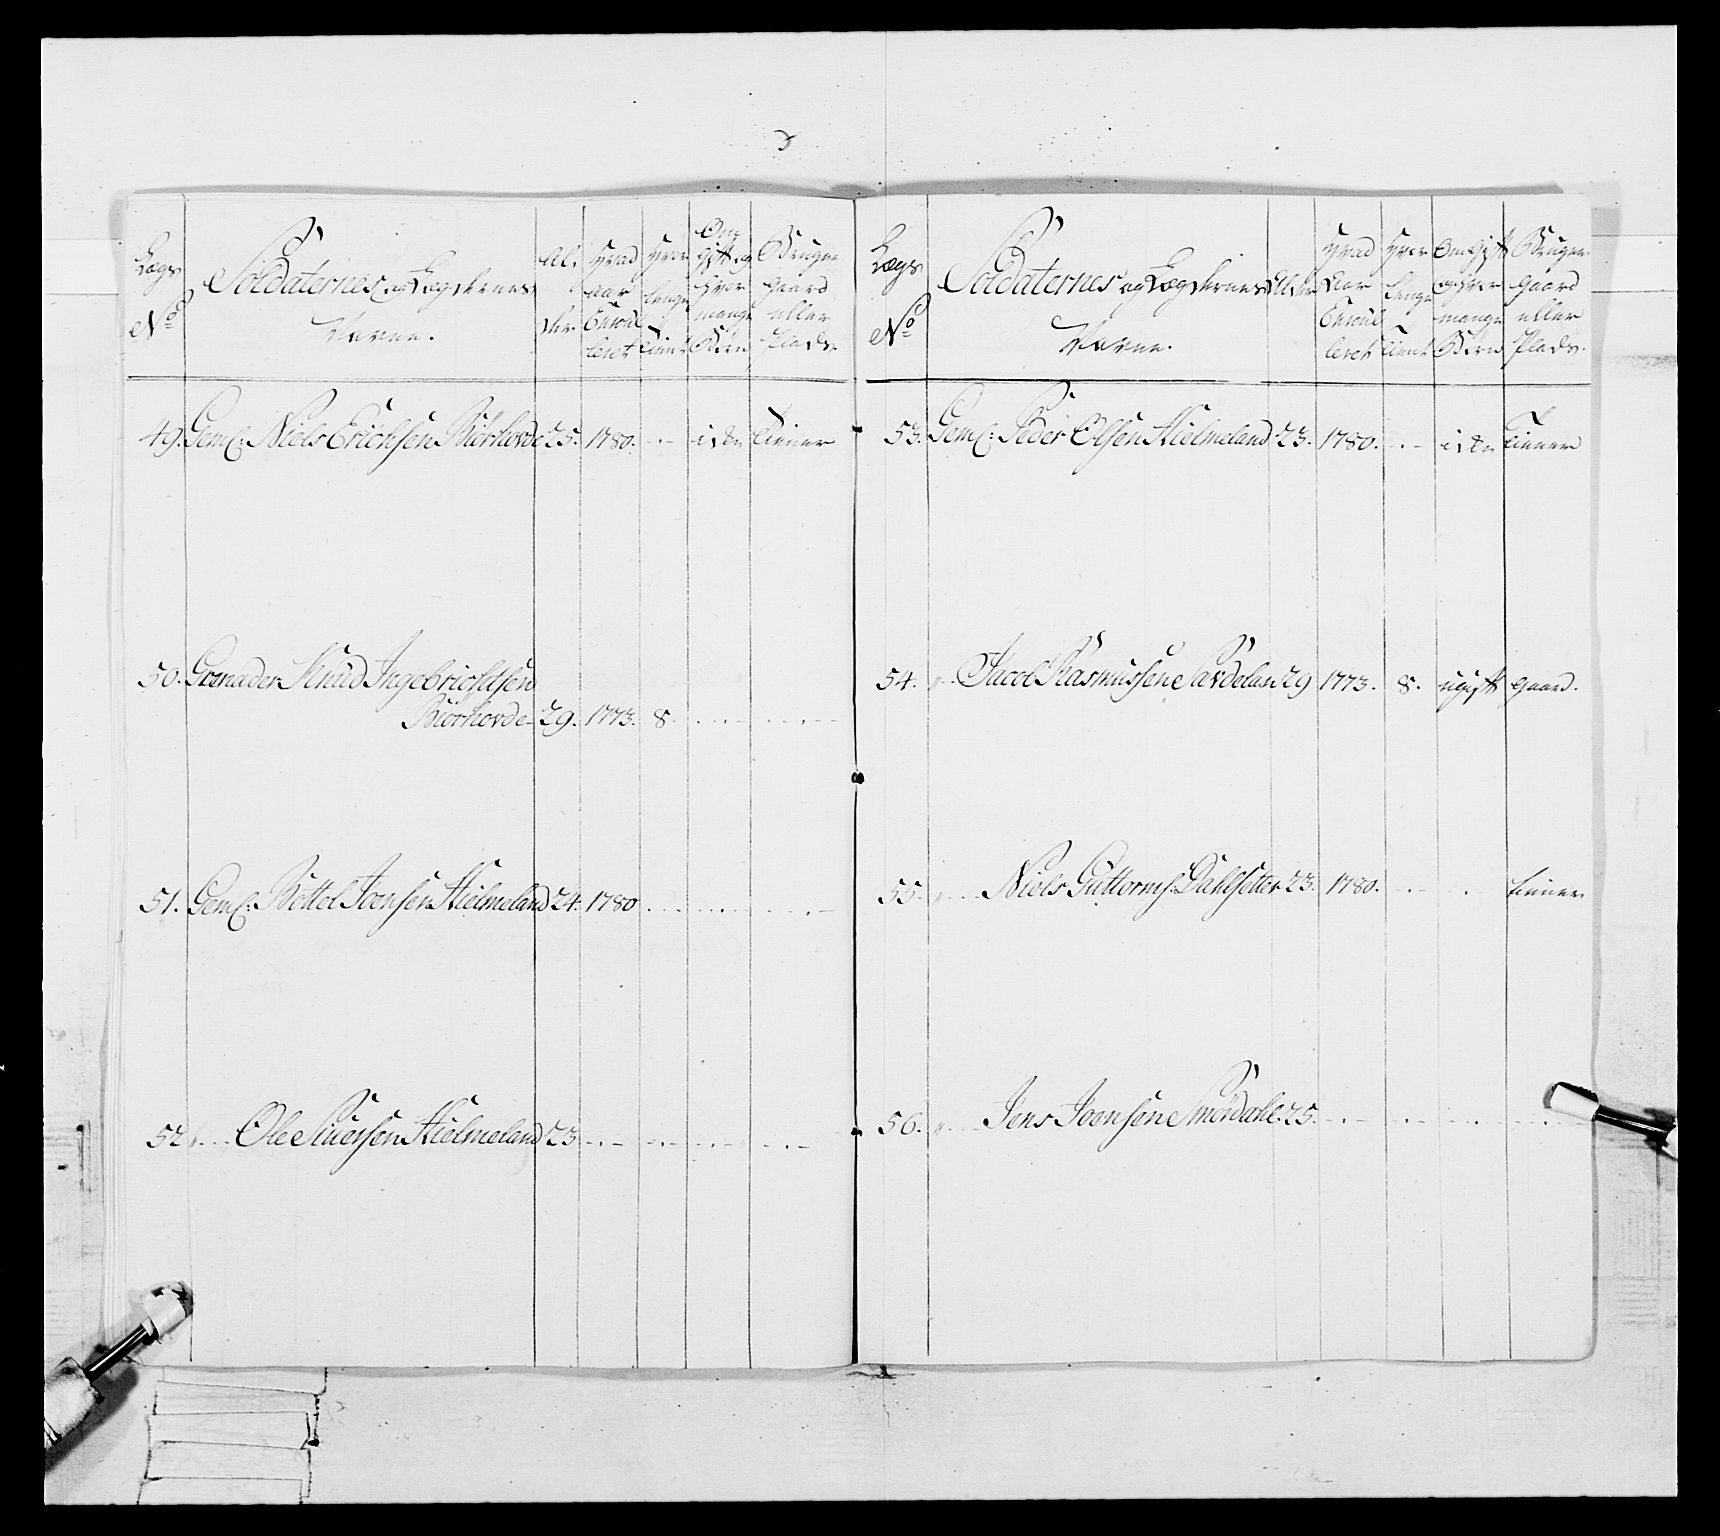 Lægs No
Soldaternes og Lægdernes Navne.
Al: der
Hvad aar Enroul leret
Hvor lenge tient
Om Gift og hvor mange Børn
Bruger gaard eller Plads.
49. Geml: Niels Erichsen Biörhovde 25. 1780. - - i de tiener
50. Grenader Knud Ingebrichtsen
Biörhovde 29. 1773. 8. - - - -
51. Geml: Bottel Joensen Hielmeland 24. 1780 - - - -
52 " Ole Siversen Hielmeland 23 - - - -
Lægs No
Soldaternes og Lægdernes Navne.
Alder
Hvad Aar Enroul leret
Hver lenge tient
Om Gift og hvor mange Børn
Bruger Gaard eller Plads.
53. Geml: Peder Olsen Hielmeland 23. 1780. - - i de tiener
54. " Jacob Rasmussen 29 1773. 8. ugift gaard.
55. " Niels Guttorms: Dahlsetter 23. 1780. - - tiener
56. " Jens Joensen Smördahl 25. - - - -